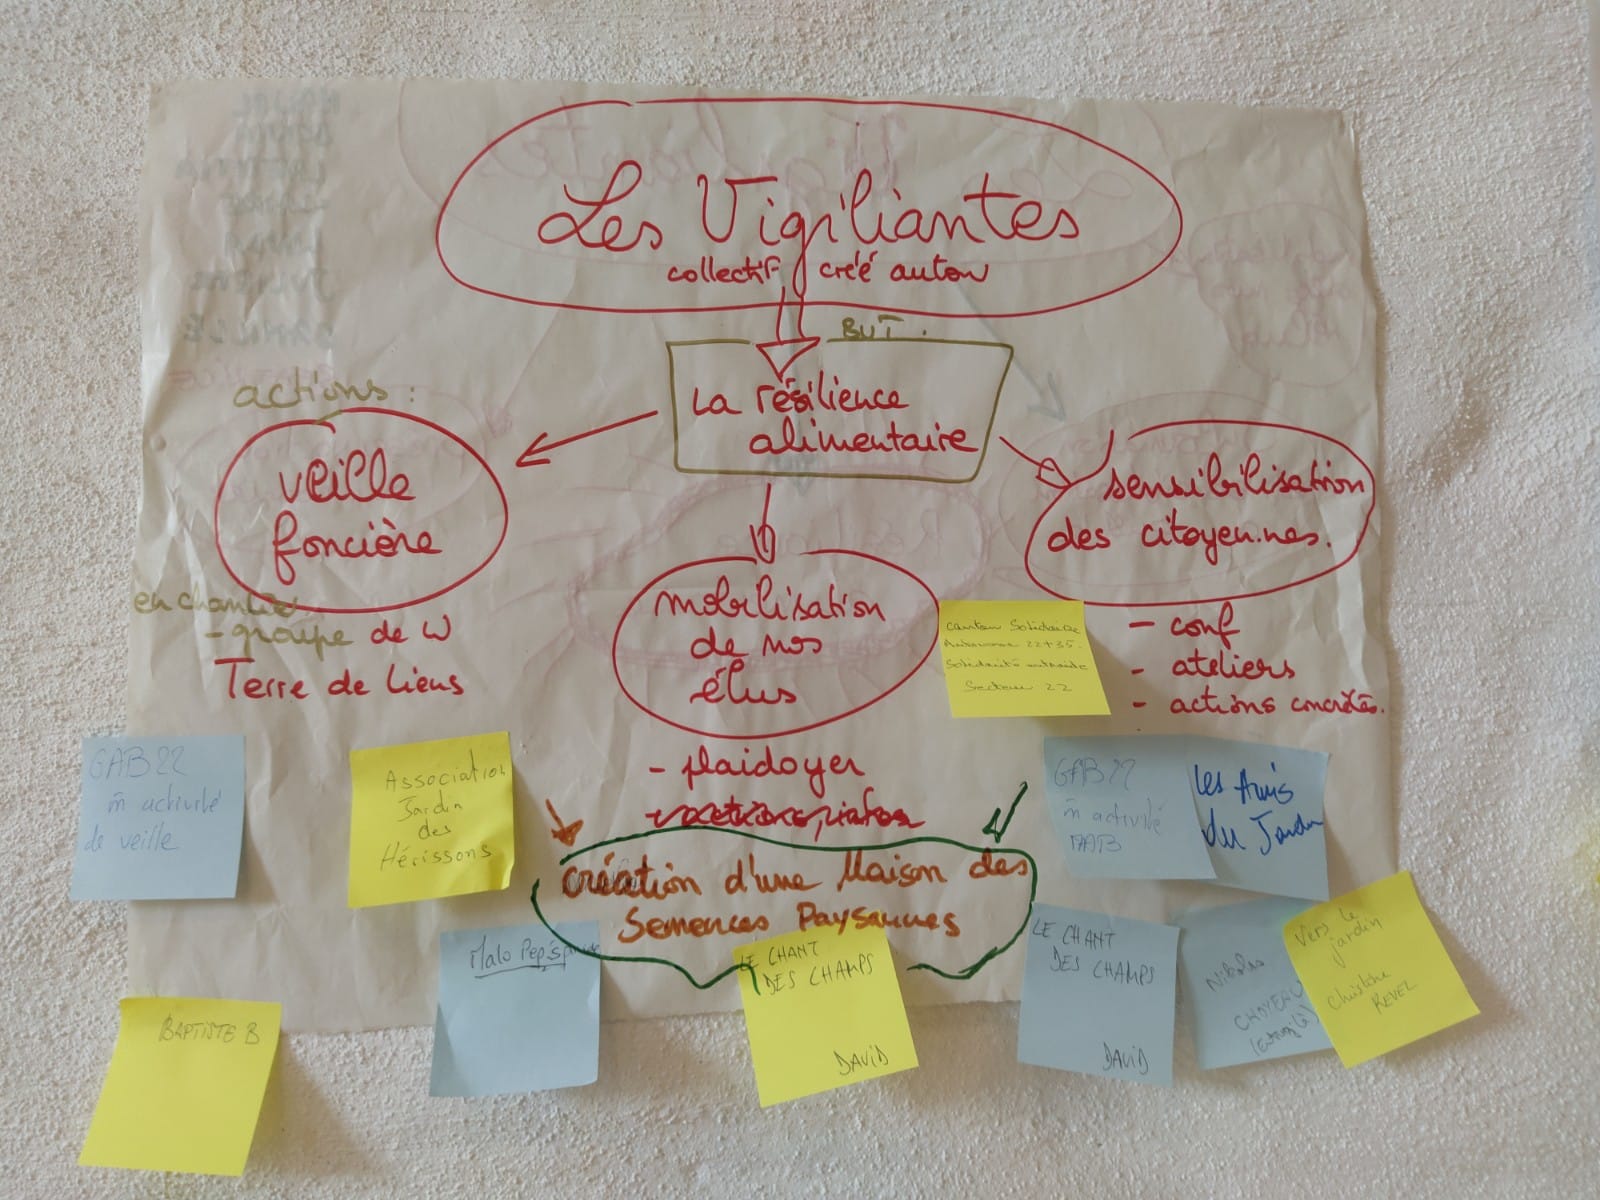 Les Vigiliantes
collectif créé auton
BUT :
La résilience
alimentaire
actions :
veille
foncière
en chantier
- groupe de W
Terre de Liens
mobilisation
de nos
élus
- plaidoyer
sensibilisation
des citoyen.nes.
- conf
- ateliers
- actions concrètes.
Création d'une Maison des
Semences Paysannes
Canton Solidaire
22+35.
Secteur 22
GAB 22
m̄ activité
de veille
Association
Jardin
des
Hérissons
GAB 22
m̄ activité
Les Amis
du Jardin
BAPTISTE B
Malo
LE CHANT
DES CHAMPS
DAVID
LE CHANT
DES CHAMPS
DAVID
Nikolas
Vers le
jardin
Christine
REVEL